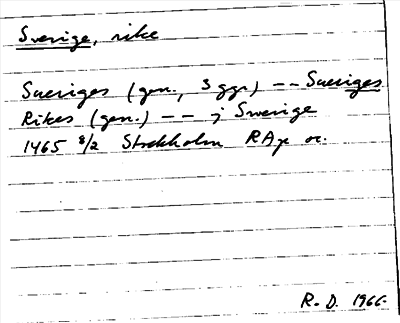 Sverige, rike
Sueriges (gen., 3 ggr) -- Sueriges
Rikes (gen.) -- ; Swerige
1465 8/2 Stockholm RAp or.
R. D. 1966.